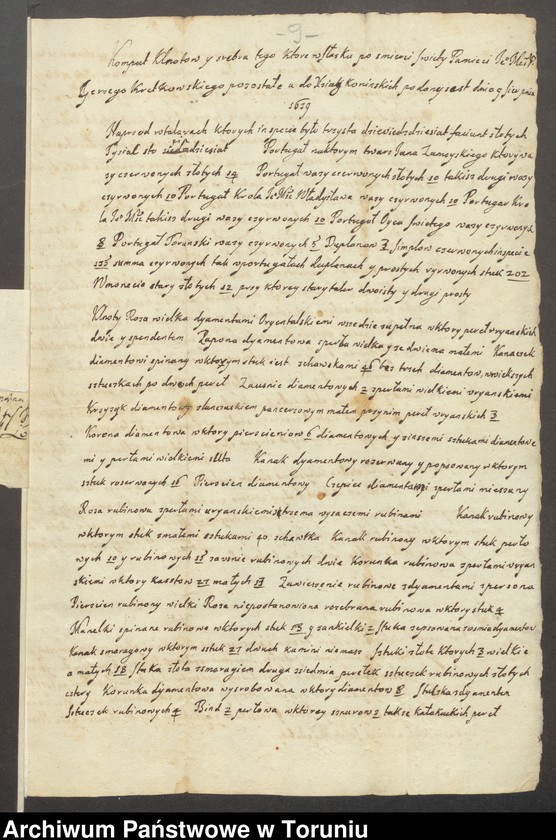 -9-
Komput Klnotow y srebra tego ktore w Slasku po smierci Swiety Pamieci Je° Mci P.
Gerzego Kretkowskiego pozostałe a do Xiąg Koninskich podany iest dnia 9 Sierpnia
1639
Naprzod w talarach ktorych in specie było trzysta dziewiedziesiat faciunt złotych
Tysiąc sto siedmdziesiat Portugał na ktorym twarz Jana Zamoyskiego ktory wa
zy czerwonych złotych 10 Portugał wazy czerwonych złotych 10 takisz drugi wazy
czyrwonych 10 Portugał Krola Je° Mci Władysława wazy czyrwonych 10 Portugar Kro
la Je° Mci takisz drugi wazy czyrwonych 10 Portugał Oyca Swietego wazy czyrwonych
8 Portugał Torunski wazy czyrwonych 5 Duplonow 7 Simplow czerwonych in specie
summa czyrwonych tak w portugałach duplonach y prostych czyrwonych stuk 202
W monecie stary złotych 12 przy ktorey stary talar dwoisty y drugi prosty
Klnoty Roza wielka dyamentami Oryentalskiemi wszedzie zupełna w ktory pereł uryanskich
dwie y spendentem Zapona dyamentowa sperła wielka y ze dwiema małemi Kanaczek
diamentowi spinany w ktorym stuk iest z chawskami 46 bez trzech diamentow, w wiekszych
sztuczkach po dwoch pereł Zausnic diamentowych 2 sperłami wielkiemi uryanskiemi
Krzyzyk diamentowy złanczuskiem pancerzowym małem przy nim pereł uryanskich 3
Korona diamentowa w ktory pierscieniow 6 diamentowych y zinszemi sztukami diamentowe
mi y perłami wielkiemi Kanak dyamentowy rozerwany y popsowany w ktorym
sztuk rozerwonych 16 Pierscien diamentowy Czepiec diamentami sperłami mieszany
Roza rubinowa sperłami uryanskiemi ztrzema wyszszemi rubinami Kanak rubinowy
w ktorym stuk zmałemi sztukami 40 schawtka Kanak rubinowy w ktorym stuk perło
wych 10 y rubinowych 11 zausnic rubinowych dwie Korunka rubinowa sperłami uryan
skiemi w ktory kasztow 22 małych 17 Zawieszenie rubinowe zdyamentami spersona
Pierscien rubinowy wielki Roza niepostanowiona rozebrana rubinowa w ktory stuk 4
Manelki spinane rubinowe w ktorych stuk 13 y zankielki 2 Stuka
Kanak smaragowy w ktorym sztuk 27 dwuch kamini niemasz Sztuki złote ktorych 3 wielkie
a małych 18 Stuka złota zsmaragiem druga siedmia perełek sztuczek rubinowych złotych
cztery Korunka dyamentowa wyrobowana w ktory diamentow 8 Stuczka zdyamentem
Sztuczek rubinowych 4 Bind 2 perłowa w ktorey sznurow 2 takze kałakuckich pereł
Archiwum Państwowe w Toruniu